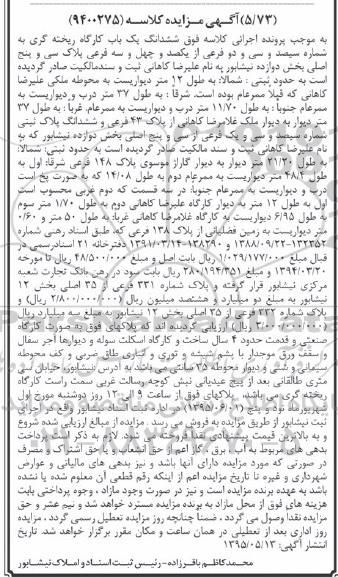 (۵/۷۳) آگهی مزایده کلاسه (۹۴۰۰۲۷۵)
به موجب پرونده اجرائی کلاسه فوق ششدانگ یک باب کارگاه ریخته گری به
شماره سیصد و سی و دو فرعی از یکصد و چهل و سه فرعی پلاک سی و پنج
اصلی بخش دوازده نیشابور به نام علیرضا کاهانی ثبت و سندمالکیت صادر گردیده
است به حدود ثبتی : شمالا: به طول ۱۲ متر دیواریست به محوطه ملکی علیرضا
کاهانی که قبلا ممرعام بوده است. شرقا : به طول ۳۷ متر درب و دیواریست به
ممرعام جنوبا : به طول ۱۱/۷۰ متر درب و دیواریست به ممرعام. غربا : به طول ۳۷
متر دیوار به دیوار ملک غلامرضا کاهانی از پلاک ۴۳ فرعی و ششدانگ پلاک ثبتی
شماره سیصد و سی و یک فرعی از سی و پنج اصلی بخش دوازده نیشابور که به
نام علیرضا کاهانی ثبت و سند مالکیت صادر گردیده است به حدود ثبتی: شمالا:
به طول ۲۱/۲۰ متر دیوار به دیوار گاراژ موسوی پلاک ۱۴۸ فرعی شرقا: اول به
طول ۴۸/۴ متر دیواریست به ممرعام دوم به طول ۱۴/۰۸ که به صورت پخ است
درب و دیواریست به ممرعام جنوبا: در سه قسمت که دوم غربی محسوب است
اول به طول ۱۲ متر به دیوار کارگاه علیرضا کاهانی دوم به طول ۱/۷۰ متر سوم
به طول ۶/۹۵ دیواریست به کارگاه غلامرضا کاهانی غربا: به طول ۵۰ متر و ۰/۶۰
متر دیواریست به زمین فضلیانی از پلاک ۱۳۸ فرعی که طبق اسناد رهنی شماره
۱۳۲۳۵۲-۱۳۸۸/۰۹/۲۲ و ۱۳۸۲۹۰-۱۳۹۱/۰۳/۱۴ دفترخانه ۲۱ اسنادرسمی در
قبال مبلغ ۱/۰۲۹/۱۷۷/۰۰۰ ریال بابت اصل و مبلغ ۴۸/۵۰۰/۰۰۰ ریال تا مورخه
۱۳۹۴/۰۳/۲۰ و مبلغ ۲۸۰/۱۹۴/۳۵۱ ریال بابت سود در رهن بانک تجارت شعبه
مرکزی نیشابور قرار گرفته و پلاک شماره ۳۳۱ فرعی از ۳۵ اصلی بخش ۱۲
نیشابور به مبلغ دو میلیارد و هشتصد میلیون ریال (۲/۸۰۰/۰۰۰/۰۰۰ ریال) و
پلاک شماره ۳۳۲ فرعی از ۳۵ اصلی بخش ۱۲ نیشابور به مبلغ سه میلیارد ریال
(۳/۰۰۰/۰۰۰/۰۰۰ ریال) ارزیابی گردیده اند که پلاکهای فوق به صورت کارگاه
صنعتی و قدمت حدود ۴ سال ساخت و کارگاه اسکلت سوله و دیوارها آجر سفال
و سقف ورق موجدار با پشم شیشه و توری و کناری طاق ضربی و کف محوطه
سیمانی و شنی و دیوار محوطه ۲۵ سانتی می باشد به آدرس نیشابور خیابان سی
متری طالقانی بعد از پیچ عیدیانی نبش کوچه رسالت غربی سمت راست کارگاه
ریخته گری می باشد. پلاکهای فوق از ساعت ۹ الی ۱۲ روز دوشنبه مورخ اول
شهریورماه نود و پنج (۱۳۹۵/۰۶/۰۱) در اداره ثبت اسناد نیشابور واقع در اجرایی
ثبت نیشابور از طریق مزایده به فروش می رسد. مزایده از مبالغ ارزیابی شده شروع
و به بالاترین قیمت پیشنهادی نقدا فروخته می شود. لازم به ذکر است پرداخت
بدهی های مربوط به آب برق ، گاز اعم از حق انشعاب و یا حق اشتراک و مصرف
در صورتی که مورد مزایده دارای آنها باشد و نیز بدهی های مالیاتی و عوارض
شهرداری و غیره تا تاریخ مزایده اعم از اینکه رقم قطعی آن معلوم شده یا نشده
باشد به عهده برنده مزایده است و نیز در صورت وجود مازاد ، وجوه پرداختی بابت
هزینه های فوق از محل مازاد به برنده مزایده مسترد خواهد شد و نیم عشر و حق
مزایده نقدا وصول می گردد ، ضمنا چنانچه روز مزایده تعطیل رسمی گردد ، مزایده
روز اداری بعد از تعطیلی در همان ساعت و مکان مقرر برگزار خواهد شد. تاریخ
انتشار آگهی: ۱۳۹۵/۰۵/۱۳
محمدکاظم باقرزاده - رئیس ثبت اسناد و املاک نیشابور